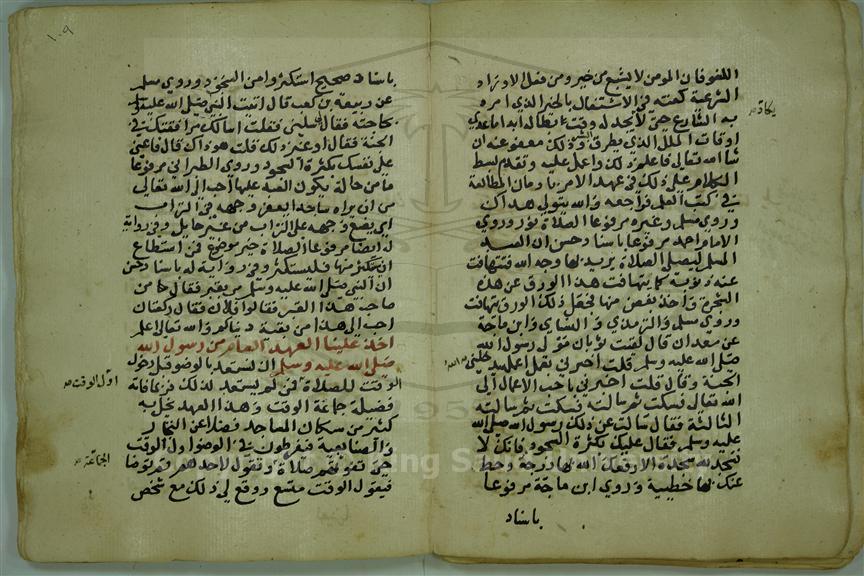 اللغو فان المومن لا يشبع من خير ومن فعل الاوراد
الشرعية كفته في الاشتغال بالخير الذي امره
يكاد صح
به الشارع حتى لا يجد له وقت بطالة ابدا ما عدي
اوقات الملل الذي يطرق وذلك معفو عنه ان
شا الله تعالى فاعلم ذلك واعمل عليه وتقدم بسط
الكلام على ذلك في عهد الامر بادمان المطالعة
في كتب العلم فراجعه والله يتولى هداك
وروي مسلم وغيره مرفوعا الصلاة نور وروي
الامام احمد مرفوعا باسناد حسن ان العبد
المسلم ليصلي الصلاة يريد بها وجه الله فتتهافت
عنه ذنوبه كما يتهافت هذا الورق عن هذه
الشجرة واخذ بغصن منها فجعل ذلك الورق يتهافت
وروي مسلم والترمذي والنساي وابن ماجة
عن معدان قال لقيت ثوبان مولى رسول الله
صلى الله عليه وسلم قلت اخبرني بعمل اعمله يدخلني الله
الجنة وقال قلت اخبرني باحب الاعمال الى
الله تعالى فسكت ثم سالته فسكت ثم سالته
الثالثة فقال سالت عن ذلك رسول الله صلى الله
عليه وسلم فقال عليك بكثرة السجود فانك لا
تسجد لله سجدة الا رفعك الله بها درجة وحط
عنك بها خطيية وروي ابن ماجة مرفوعا
باسناد
١٠٩
باسناد صحيح استكثروا من السجود وروي مسلم
عن ربيعة بن كعب قال اتيت النبي صلى الله عليه وسلم
بحاجته فقال لي سلني فقلت اسالك مرافقتك في
الجنة فقال او غير ذلك قلت هو ذاك قال فاعني
على نفسك بكثرة السجود وروي الطبراني مرفوعا
ما من حالة يكون العبد عليها احب الى الله تعالى
من ان يراه ساجدا يعفر وجهه في التراب
اي يضع وجهه على التراب من غير حايل وفي رواية
له ايضا مرفوعا الصلاة خير موضوع فمن استطاع
ان يستكثر منها فليستكثر وفي رواية له باسناد حسن
ان النبي صلى الله عليه وسلم مر بقبر فقال من
صاحب هذا القبر فقالوا فلان فقال ركعتان
احب الى هذا من بقية دنياكم والله تعالى اعلم
اخذ علينا العهد العام من رسول الله
صلى الله عليه وسلم ان نستعد بالوضو قبل دخول
الوقت للصلاة فمن لم يستعد لذلك فربما فاته
اول الوقت صح
فضيلة جماعة الوقت وهذا العهد يخل به
كثير من سكان المساجد فضلا عن التجار
والصنايعية فيفرطون في الوضو اول الوقت
حتى تفوتهم صلاة وتقول لاحدهم قم توضا
الجماعة صح
فيقول الوقت متسع ووقع لي ذلك مع شخص